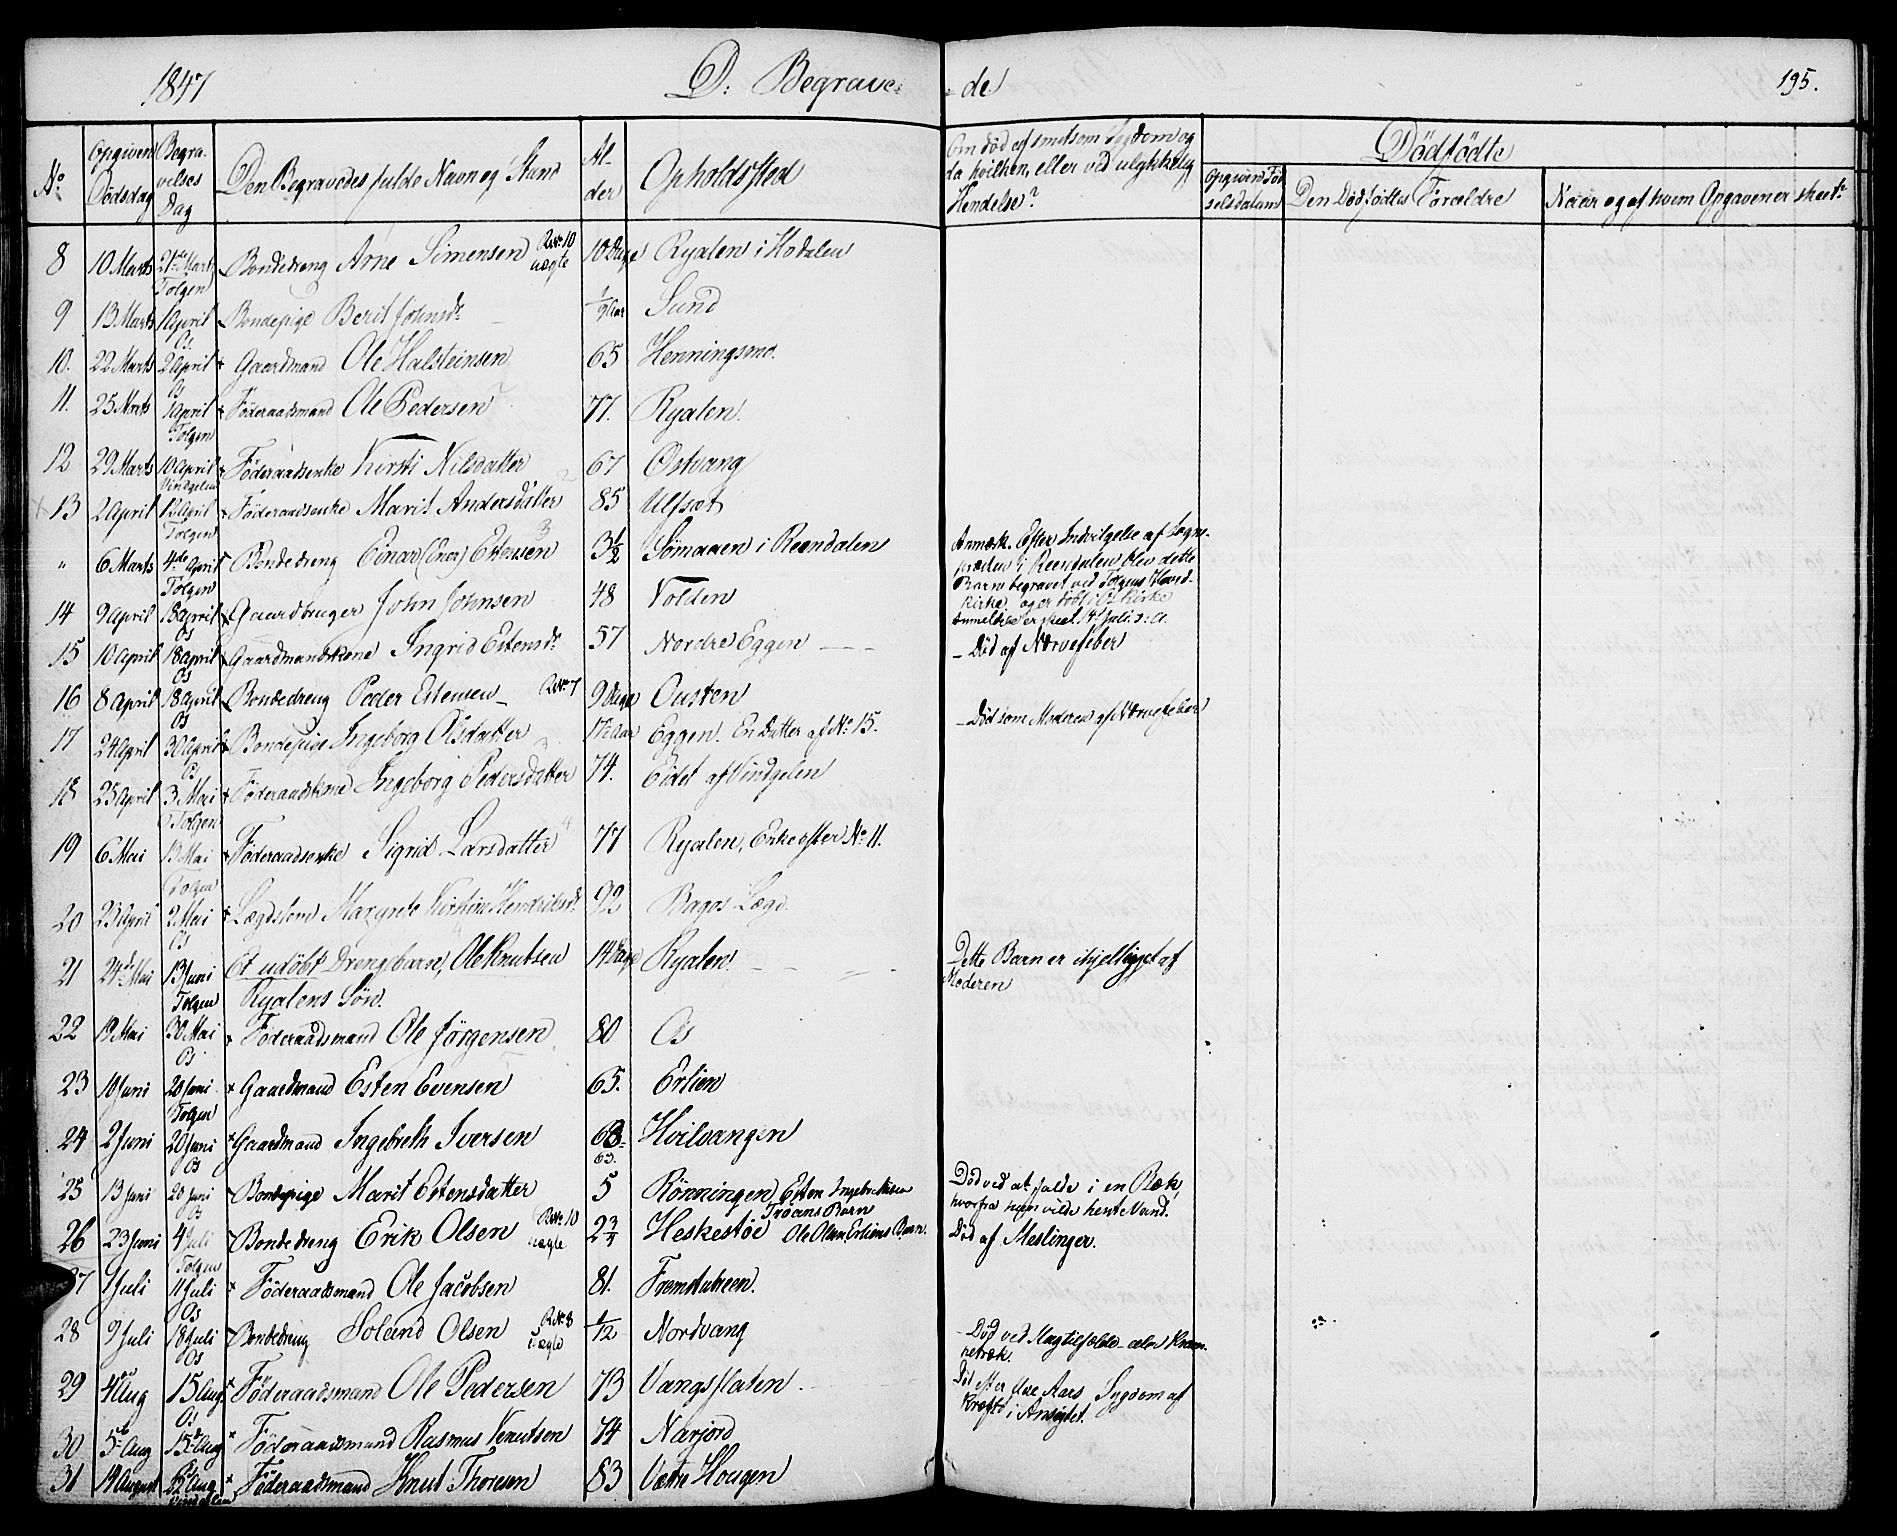 1847 D: Begrave- -de 195.
No Opgiven Dødsdag Begravelses Dag Den Begravedes fulde Navn og Stand Alder Opholdssted Om død af smitsom Sygdom og da hvilken, eller ved ulykkelig Hendelse? Dødfødte
Opgiven Fødselsdatum Den Dødfødtes Forældre Naar og af hvem Opgaven er skeet?
8 10 Marts 21de Marts Tolgen Bondedreng Arne Simensen R. No 10 uægte 10 Dage Ryalen i Hodalen
9 13 Marts 1 April Os Bondepige Berit Johnsd. Sund
10. 22 Marts 2 April Os + Gaardmand Ole Halsteinsen 65 Henningsmo.
11. 25 Marts 1 April Tolgen + Føderaadsmand Ole Pedersen 77. Ryalen.
12 29 Marts 10 April Vindgelen + Føderaadsenke Kirsti Nilsdatter 67 Østvang
13 2 April 12 April Tolgen + Føderaadsenke Marit Andersdatter 85 Ulfsæt
" 6 Marts 4de April Tolgen Bondedreng Einar (Enar) Estensen 3½ Sømaaen i Reendalen Anmærk. Efter Indvilgelse af Sogne-
præsten i Reendalen blev dette
Barn begravet ved Tolgens Hoved-
kirke, og er døbt i Kirke
Anmeldelse er skeet 14 Juli s: a.
14 9 April 18 April Os Gaardbruger John Johnsen 48 Volden
15 10 April 18 April Os Gaardmandskone Ingrid Estensd. 57 Nordre Eggen - Død af Nervefeber
16 8 April 18 April Os Bondedreng Peder Estensen R. No 7 9 Dage Ousten
17 24 April 30 April Os Bondepige Ingeborg Olsdatter 17 Aar Eggen. En Datter af No 15. - Død som Moderen af Nervefeber
18 25 April 3 Mai Tolgen + Føderaadskone Ingeborg Pedersdatter 74. Eidet af Vindgelen
19 6 Mai 13 Mai Tolgen + Føderaadsenke Sigrid Larsdatter 77 Ryalen, Enke efter No 11.
20 23 April 2 Mai Os + Lægdslem Margrete Kirstine Hendriksd. 92 Lægd.
21 24de Mai 13 Juni Tolgen Et udøbt Drengebarn, Ole Knutsen 14 Dage Ryalen. Dette Barn er ihjelligget af
Ryalens Søn. Moderen
22 19 Mai 30 Mai Os + Føderaadsmand Ole Jørgensen 80 Os
23 10 Juni 20 Juni Tolgen + Gaardmand Esten Evensen 65. Erlien
24 2 Juni 20 Juni Os + Gaardmand Ingebreth Iversen 63. Hvilvangen
25 13 Juni 20 Juni Os Bondepige Marit Estensdatter 5 Rønningen Esten Ingebrethsen Død ved at falde i en Bæk,
Trøens Barn hvorfra hun vilde hente Vand.
26 23 Juni 4 Juli Tolgen Bondedreng Erik Olsen R. No 10 uægte 2¾ Heskestøe Ole Olsen Erliens Barn. Død af Meslinger.
27 1 Juli 11 Juli Os + Føderaadsmand Ole Jacobsen 81. Fremstuheen.
28 9 Juli 18 Juli Os Bondedreng Olsen R. No 8 uægte Nordvang - Død ved Slagtilfælde eller Kram-
petræk.
29 4de Aug 15 Aug Os + Føderaadsmand Ole Pedersen 73 Vangsflaten. Død efter flere Aars Sygdom af
Kræft i Ansigtet.
30 5te Aug 15de Aug Os + Føderaadsmand Rasmus Knutsen 74 Narjord
31 19 August 22 Aug Vindgelen + Føderaadsmand Knut Thoresen 83 Vætre Hougen